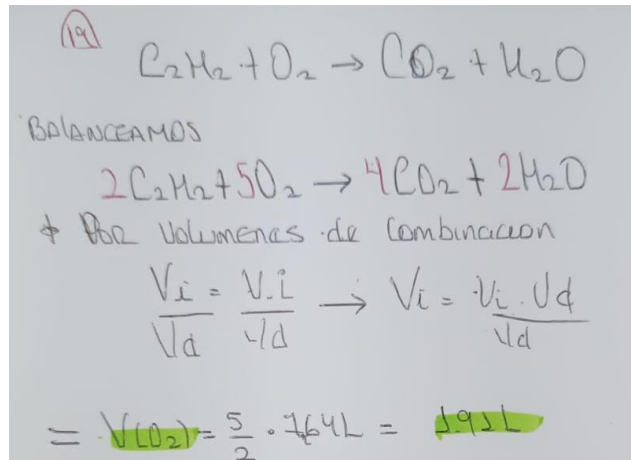 19
C2H2 + O2 → CO2 + H2O
BALANCEAMOS
2C2H2 + 5O2 → 4CO2 + 2H2O
* POR VOLUMENES de COMBINACION
Vi/Vd = V.i/Vd → Vi = Vi . Vd/Vd
= V(O2) = 5/2 . 764L = 1.91L